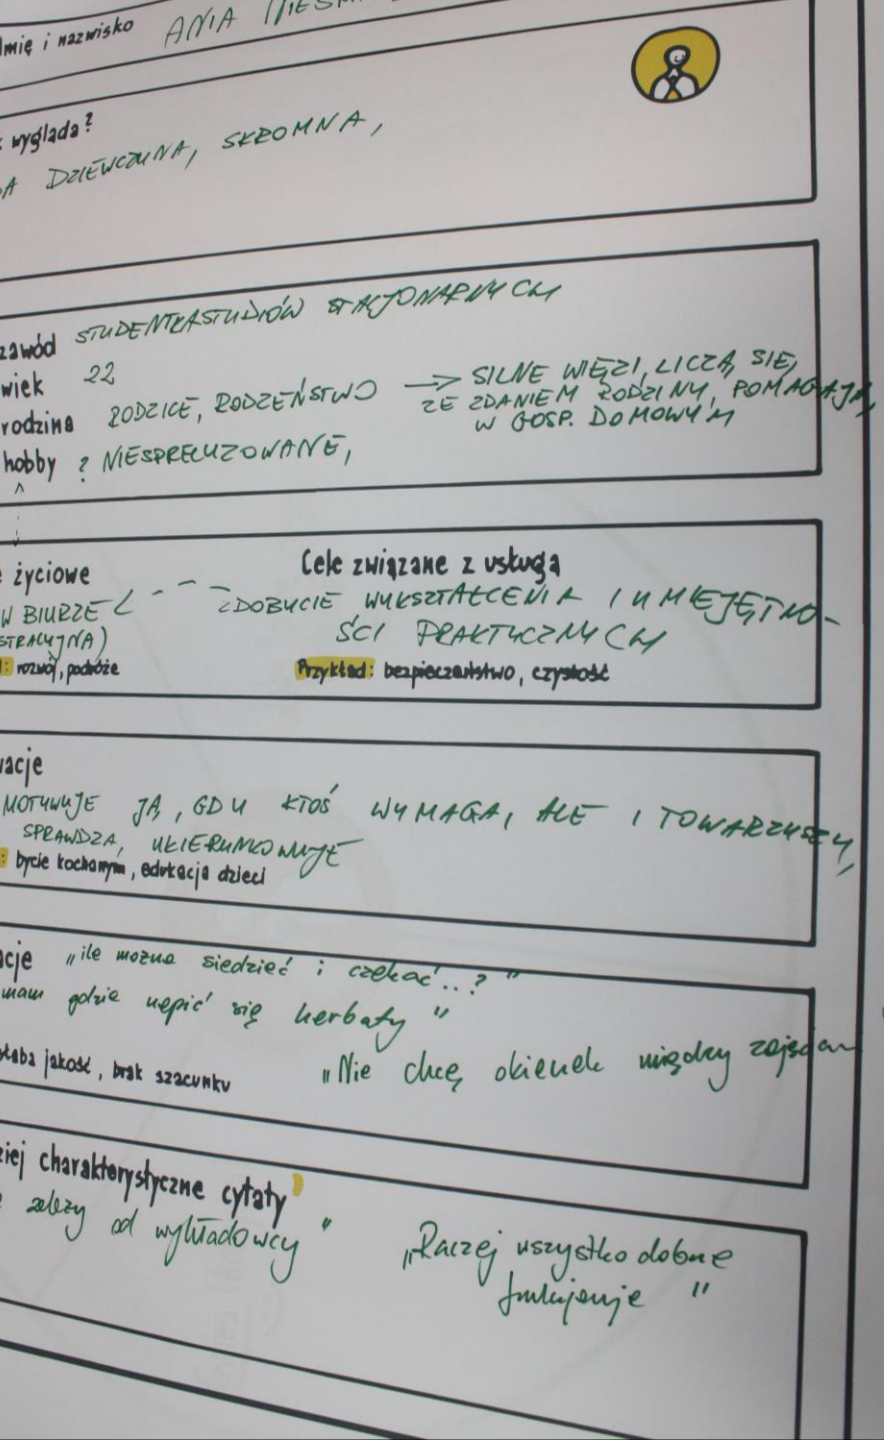 Imię i nazwisko ANIA
wygląda?
DZIEWCZYNA, SKROMNA,
zawód STUDENTKA STUDIÓW STACJONARNYCH
wiek 22
rodzina RODZICE, RODZEŃSTWO → SILNE WIĘZI, LICZĄ SIĘ,
ZE ZDANIEM RODZINY, POMAGAJĄ,
W GOSP. DOMOWYM
hobby ? NIESPRECYZOWANE,
życiowe
W BIURZE
Cele związane z usługą
ZDOBYCIE WYKSZTAŁCENIA I UMIEJĘTNO-
ŚCI PRAKTYCZNYCH
: rozwój, podróże
Przykład: bezpieczeństwo, czystość
MOTYWUJE JĄ, GDY KTOŚ WYMAGA, ALE I TOWARZYSZY,
SPRAWDZA, UKIERUNKOWUJE
: bycie kochanym, edukacja dzieci
"ile można siedzieć i czekać..?"
mam gdzie napić się herbaty"
słaba jakość, brak szacunku
"Nie chcę okienek między zajęciami
charakterystyczne cytaty
zależy od wykładowcy"
"Raczej wszystko dobrze
funkcjonuje"